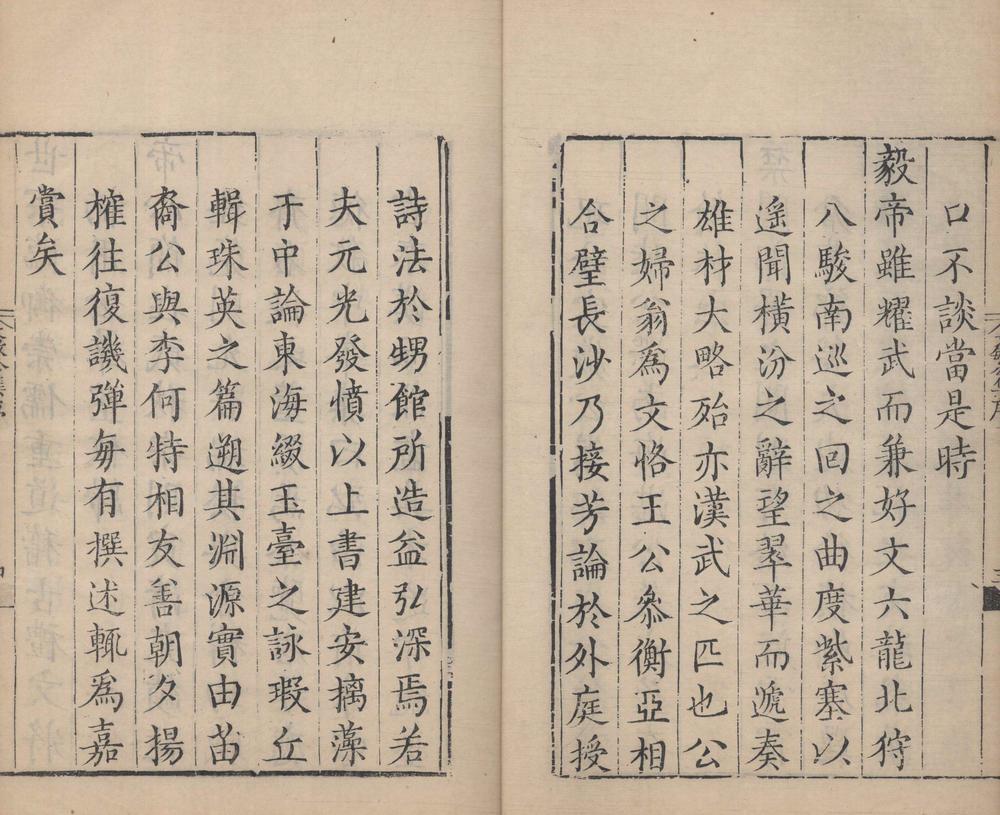 口不談當是時
毅帝雖耀武而兼好文六龍北狩
八駿南巡之回之曲度紫塞以
遥聞橫汾之辭望翠華而遞奏
雄材大略殆亦漢武之匹也公
之婦翁爲文恪王公叅衡亞相
合璧長沙乃接芳論於外庭授
詩法於甥館所造益弘深焉若
夫元光發憤以上書建安摛藻
于中論東海綴玉臺之詠瑕丘
輯珠英之篇遡其淵源實由苗
裔公與李何特相友善朝夕揚
榷往復譏彈每有撰述輒爲嘉
賞矣